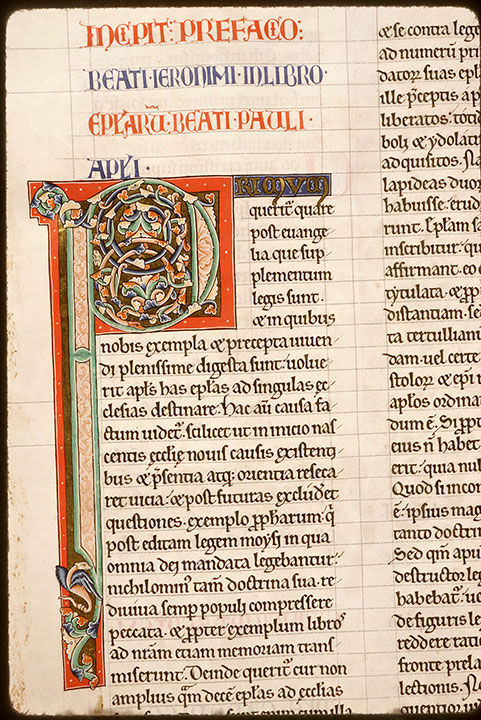 INCIPIT: PREFACIO:
BEATI·IERONIMI·INLIBRO·
EPĽARŪ·BEATI·PAULI·
APĽI·
PRIMVM
querit̄ quare
post euange
lia que sup
plementum
legis sunt·
⁊ in quibus
nobis exempla ⁊ precepta uiuen
di plenissime digesta sunt· uolue
rit apl̄s has epl̄as ad singulas ęc
clesias destinare· Hac aū causa fa
ctum uidet̄· scilicet ut in inicio nas
centis ęcclię nouis causis existenti
bus ⁊ p̄sentia atq; orientia reseca
ret uicia· ⁊ post futuras excluderet
questiones· exemplo ꝓphar̄um· q̄
post editam legem moysi in qua
omnia dei mandata legebantur·
nichilomin᾽ tam̄ doctrina sua re
diuiua semꝑ populi compressere
peccata· ⁊ ꝓpter exemplum libros
ad nr̄am etiam memoriam trans
miserunt· Deinde querit̄ cur non
amplius quā decē epl̄as ad ęcclias
⁊ se contra lege
ad numerū pri
dator̄ suas epl̄
ille p̄ceptis a p
liberatos· totid
boli ⁊ ydolatri
adquisitos· Na
lapideas duo
habuisse· erud
runt· Epl̄am sa
inscribitur· qu
affirmant· eo
tytulata· ⁊ ꝓp
distantiam· se
ta tertulliani
dam· uel certe
stolor̄ ⁊ ep̄i r
apl̄os ordina
dum ē· Si ꝓpt
eius n̄ habet
erit· quia nul
Quod si incon
ē· ipsius mag
tanto doctrin
Sed qm̄ apu
destructor le
habebat᾽· uo
de figuris le
reddere rati
fronte prela
lectionis· Ne